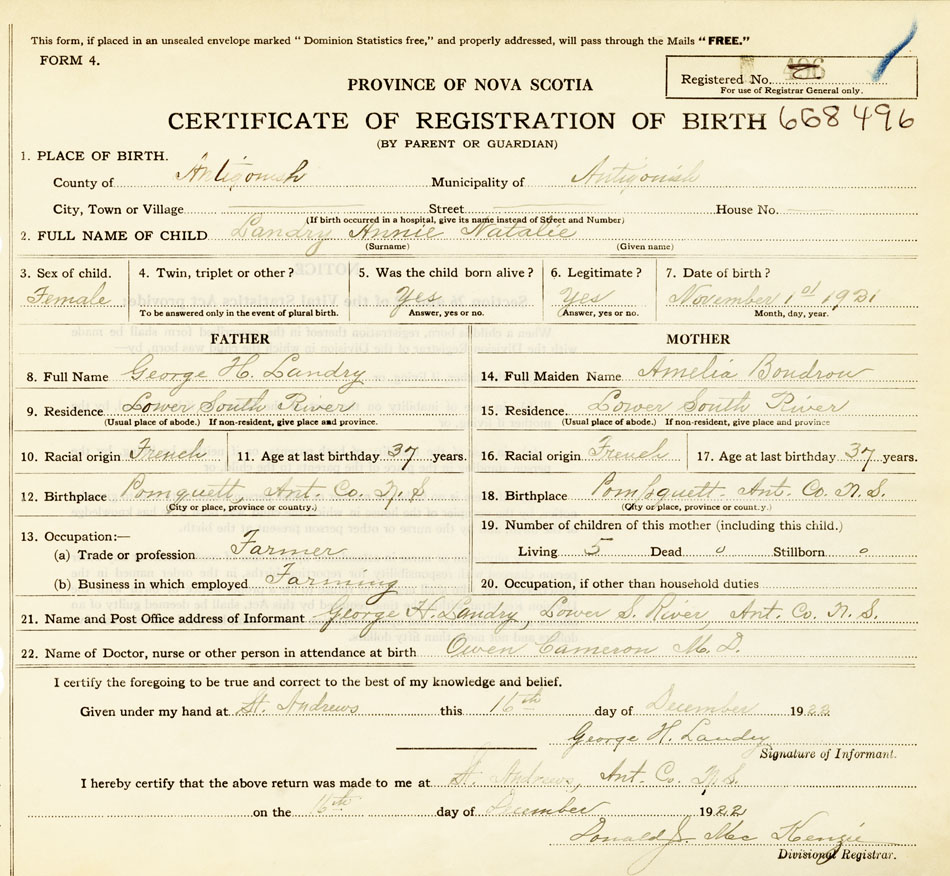 This form, if placed in an unsealed envelope marked "Dominion Statistics free," and properly addressed, will pass through the Mails "FREE."
FORM 4.
Registered No. 496
For use of Registrar General only.
PROVINCE OF NOVA SCOTIA
CERTIFICATE OF REGISTRATION OF BIRTH 668 496
(BY PARENT OR GUARDIAN)
1. PLACE OF BIRTH.
County of Antigonish Municipality of Antigonish
City, Town or Village Street House No.
(If birth occurred in a hospital, give its name instead of Street and Number)
2. FULL NAME OF CHILD Landry Annie Natalie
(Surname) (Given name)
3. Sex of child. 4. Twin, triplet or other? 5. Was the child born alive? 6. Legitimate? 7. Date of birth?
Female Yes Yes November 1st 1921
To be answered only in the event of plural birth. Answer, yes or no. Answer, yes or no. Month, day, year.
FATHER MOTHER
8. Full Name George H. Landry 14. Full Maiden Name Amelia Boudrou
9. Residence. Lower South River 15. Residence. Lower South River
(Usual place of abode.) If non-resident, give place and province. (Usual place of abode.) If non-resident, give place and province
10. Racial origin French 11. Age at last birthday 37 years. 16. Racial origin French 17. Age at last birthday 37 years.
12. Birthplace Pomquett, Ant. Co. N.S 18. Birthplace Pomquett- Ant. Co. N.S.
(City or place, province or country.) (City or place, province or country.)
13. Occupation:— 19. Number of children of this mother (including this child.)
(a) Trade or profession Farmer Living 5 Dead 0 Stillborn 0
(b) Business in which employed Farming 20. Occupation, if other than household duties
21. Name and Post Office address of Informant George H. Landry, Lower S. River, Ant. Co. N.S.
22. Name of Doctor, nurse or other person in attendance at birth Owen Cameron M.D.
I certify the foregoing to be true and correct to the best of my knowledge and belief.
Given under my hand at St. Andrews this 16th day of December 1922
George H. Landry
Signature of Informant.
I hereby certify that the above return was made to me at St. Andrews, Ant. Co. N.S.
on the 16th day of December 1922
Donald J. Mc Kenzie
Divisional Registrar.